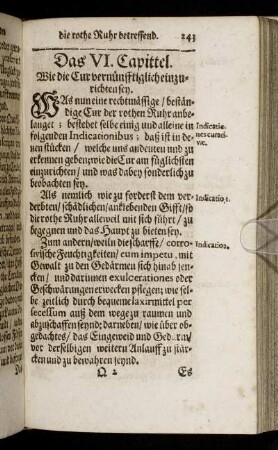 die rothe Ruhr betreffend. 243
Das VI. Capittel.
Wie die Cur vernünfftiglich einzu-
richten sey.
WAs nun eine rechtmässige / bestän-
dige Cur der rothen Ruhr anbe-
langet; bestehet selbe einig und alleine in
folgenden Indicationibus; daß ist in de-
nen stücken / welche uns andeuten und zu
erkennen geben; wie die Cur am füglichsten
einzurichten / und was dabey sonderlich zu
beobachten sey.
Indicatio-
nes curati-
væ.
Als nemlich wie zu forderst dem ver-
derbten / schädlichen / anklebenden Gifft / so
die rothe Ruhr alleweil mit sich führt / zu
begegnen und das Haupt zu bieten sey.
Indicatio 1.
Zum andern / weiln die scharffe / corro-
sivische Feuchtigkeiten / cum impetu, mit
Gewalt zu den Gedärmen sich hinab sen-
cken / und darinnen exulcerationes oder
Geschwärungen erwecken pflegen; wie sel-
be zeitlich durch bequeme laxirmittel per
secessum auß dem wege zu raumen und
abzuschaffen seynd; darneben / wie über ob-
gedachtes / das Eingeweid und Gedärm /
vor derselbigen weitern Anlauff zu stär-
cken und zu bewahren seynd.
Indicatio 2.
Q 2 Es